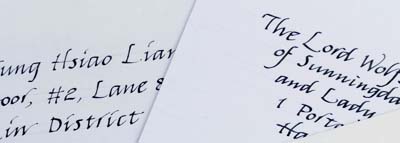 Hsiao Lian
#2, Lane 8
District
The Lord Wolfs
of Sunningda
and Lady
1 Porto
Ha